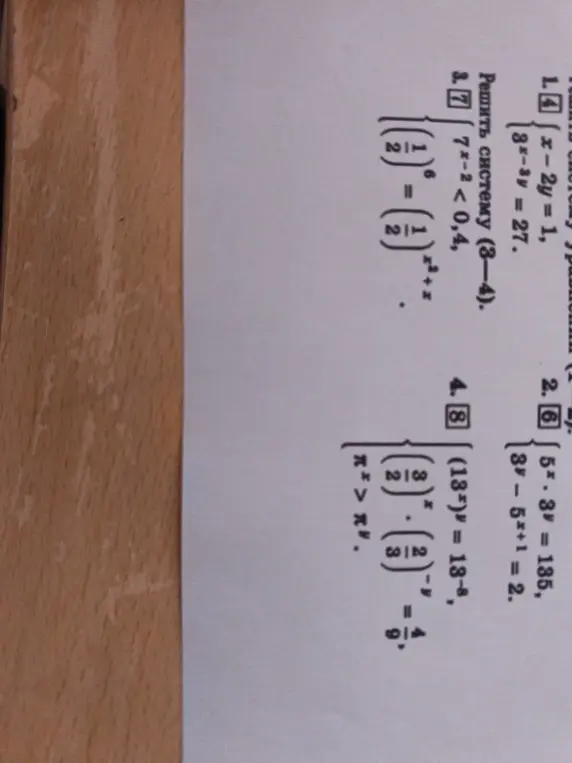 1. 4 { x − 2y = 1,
3^{x−3y} = 27.
2. 6 { 5^x · 3^y = 135,
3^y − 5^{x+1} = 2.
Решить систему (3—4).
3. 7 { 7^{x−2} < 0,4,
(1/2)^6 = (1/2)^{x^2+x}.
4. 8 { (13^x)^y = 13^{−8},
(3/2)^x · (2/3)^{−y} = 4/9,
π^x > π^y.